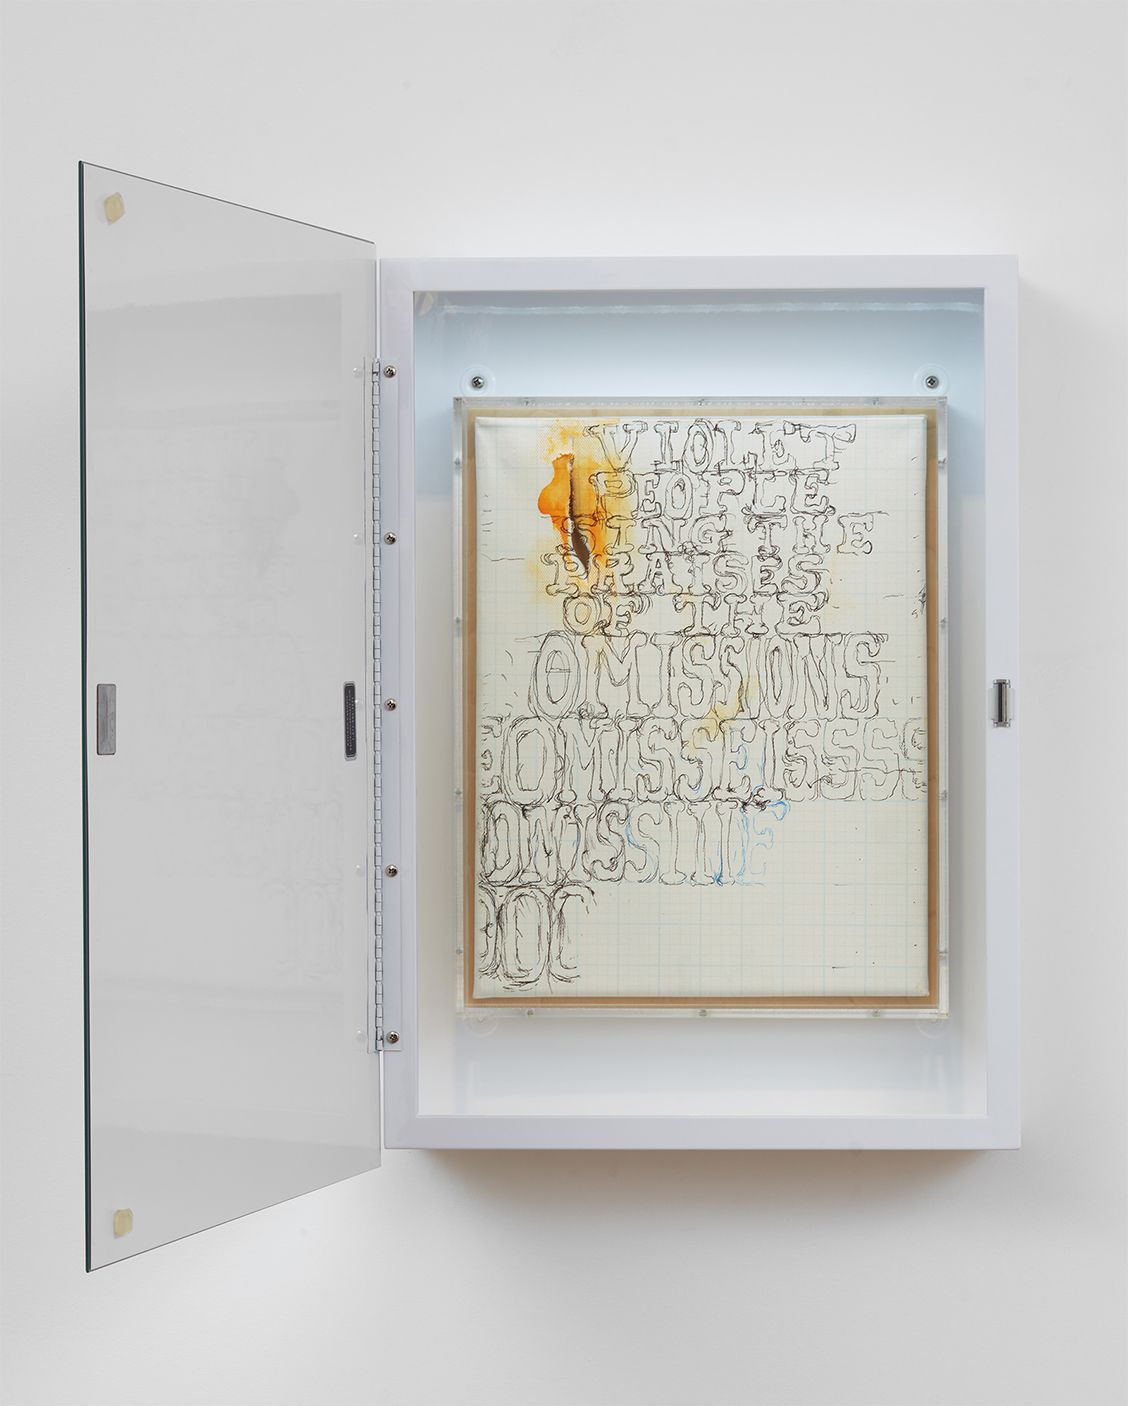 VIOLET
PEOPLE
SING THE
PRAISES
OF THE
OMISSIONS
EOMISSEISSSS
OMISSIINE
OOO